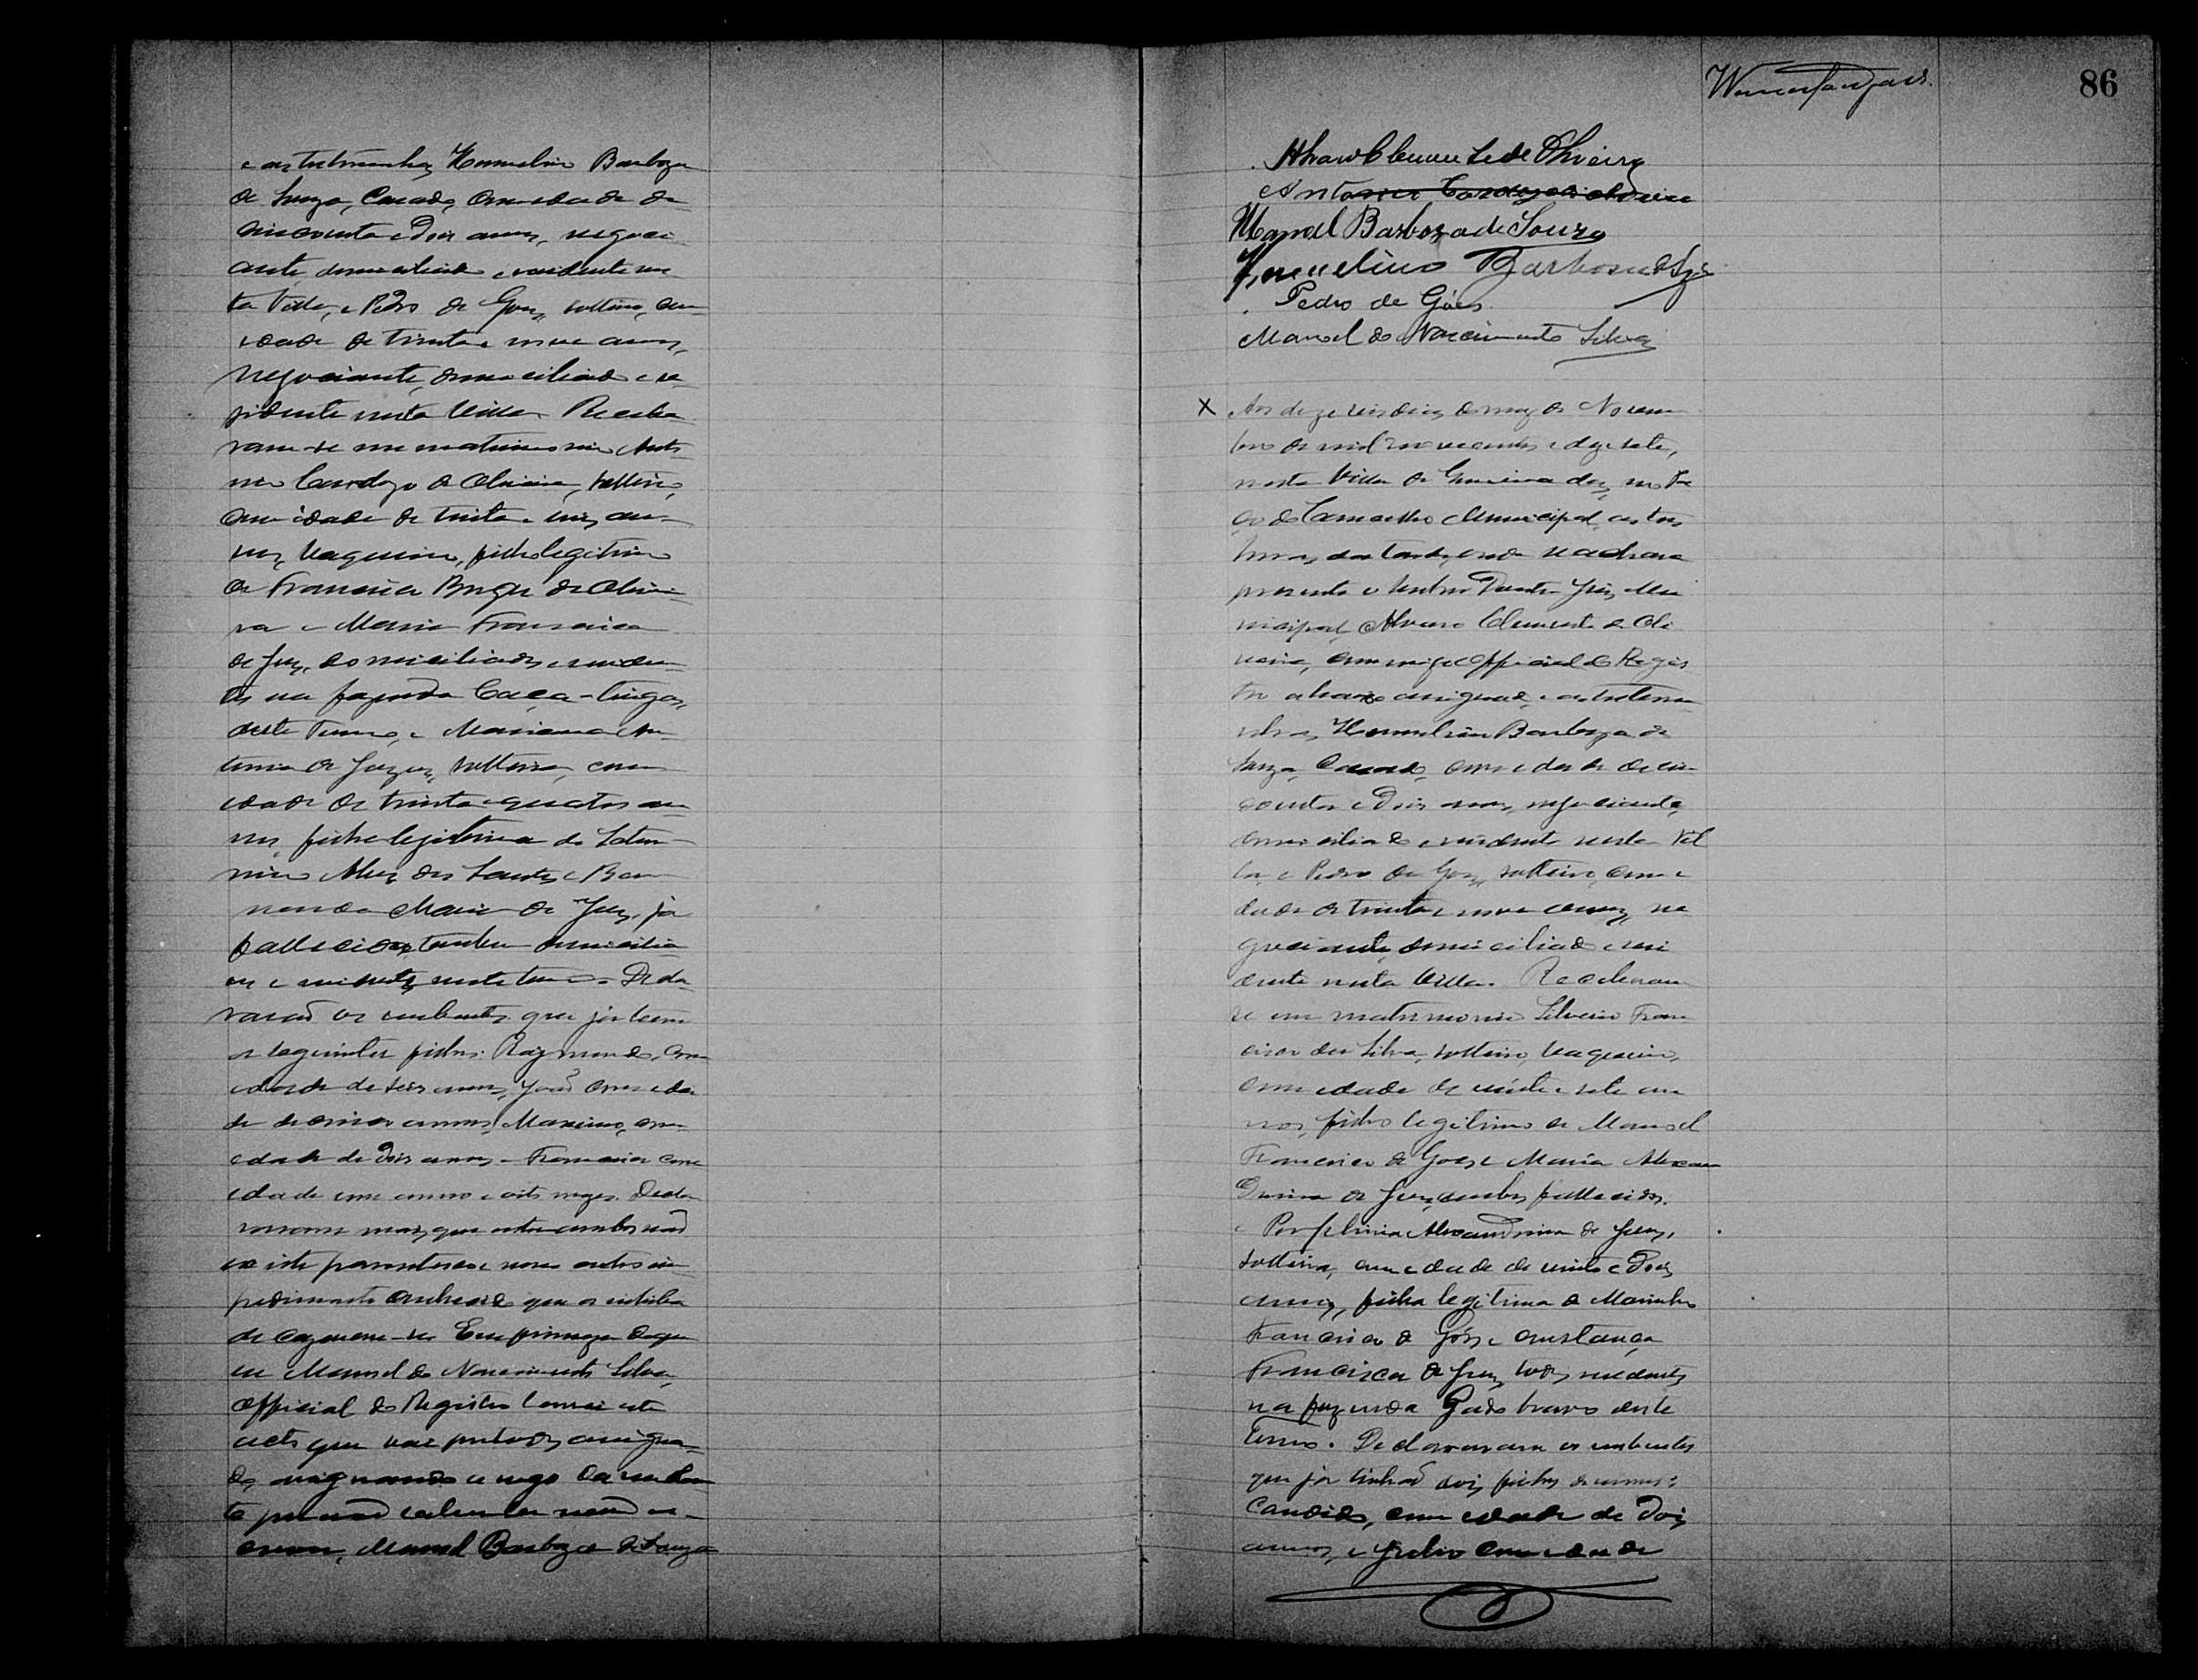 e as testemunhas Hermelino Barboza
de Souza, Casado, com edade de
cincoenta e dois annos, negoci-
ante, domiciliado e residente nes-
ta Villa, e Pedro de Goes, solteiro, com
edade de trinta e nove annos,
negociante, domiciliado e re-
sidente nesta Villa. Recebe-
ram-se em matrimonio Anto-
nio Cardozo de Oliveira, solteiro,
com idade de trinta e seis an-
nos, vaqueiro, filho legitimo
de Francisco Borges de Olivei-
ra e Maria Francisca
de Jesus, domiciliados e residen-
tes na fazenda Caça-tinga,
deste Termo, e Marianna An-
tonia de Jesus, solteira, com
edade de trinta e quatro an-
nos, filha legitima de Satur-
nino Alves dos Santos e Ber-
narda Maria de Jesus, já
fallecidos, tambem domicilia-
e residentes neste termo. Decla-
rarão os nubentes que já teem
os seguintes filhos: Raymundo, com
edade de seis annos, João com eda-
de de cinco annos, Maximo, com
edade de dois annos. Francisca com
edade um anno e oito mezes. Decla-
raram mais que entre ambos não
existe parentesco nem outro im-
pedimento conhecido que os inhiba
de cazarem-se. Em firmeza do que
eu Manoel do Nascimento Silva,
Official do Registro lavrei este
acto que vae por todos assigna-
do, assignando a rogo da nuben-
te por não saber ler nem es-
crever, Manoel Barboza de Souza
86
Alvaro Clemente de Oliveira
Antonio Cardozo de Oliveira
Manoel Barboza de Souza
Hermelino Barbosa de Sza
Pedro de Góes
Manoel do Nascimento Silva
X Aos dezeseis dias do mez de Novem-
bro de mil novecentos e dezesete,
nesta Villa de , no Pa
ço do Conselho Municipal, as tres
horas da tarde, onde se achava
presente o Doutor Juiz Mu
nicipal, Alvaro Clemente de Oli
veira, commigo Official do Regis
tro abaixo assignado, e as testemu
nhas, Hermelino Barboza de
Souza, Casado, com edade de cin
coenta e dois annos, negociante,
domiciliado e residente nesta Vil
la, e Pedro de Goes, solteiro, com e
dade de trinta e nove annos, ne
gociante, domiciliado e resi
dente nesta Villa. Receberam
se em matrimonio Silverio Fran
cisco da Silva, solteiro, vaqueiro,
com edade de vinte e sete an
nos, filho legitimo de Manoel
Francisco de Goes e Maria Alexan
drina de Jesus, ambos fallecidos.
e Porfelinia Alexandrina de Jesus,
solteira, com edade de vinte e dois
annos, filha legitima de Marinho
Francisco de Góes e Constança
Francisca de Jesus, todos residentes
na fazenda Gado bravo deste
Termo. Declararam os nubentes
que já tinhão dois filhos de nomes:
Candido, com edade de dois
annos, e Julio com edade de